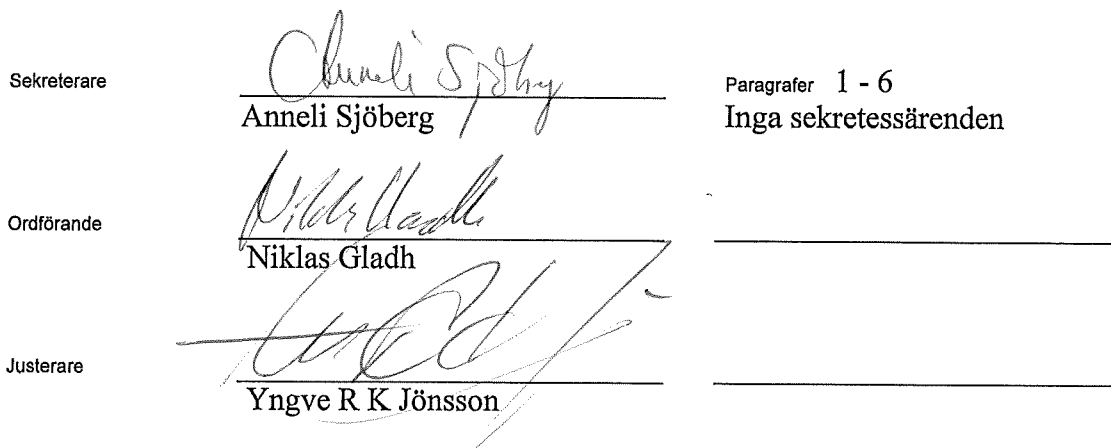 Sekreterare Anneli Sjöberg Paragrafer 1 - 6
Anneli Sjöberg Inga sekretessärenden
Ordförande Niklas Gladh
Niklas Gladh
Justerare
Yngve R K Jönsson